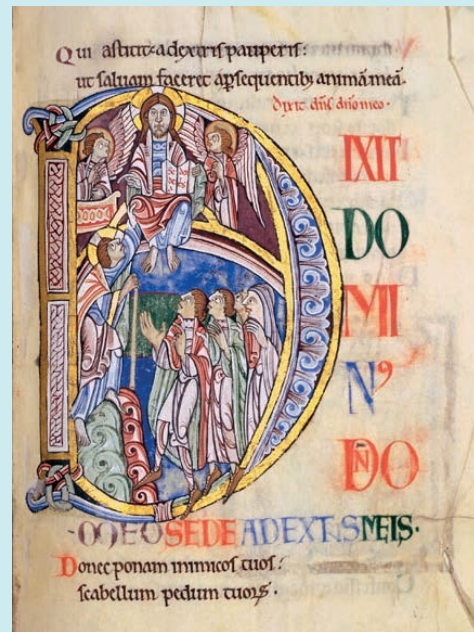 Qui astitit a dextris pauperis:
ut saluam faceret a ꝑsequentib; animā meā.
dixit dn̄s dn̄o meo.
DIXIT
DO
MI
Nꝰ
DN̄O
MEO SEDE A DEXTRIS MEIS.
Donec ponam inimicos tuos:
scabellum pedum tuoꝝ.